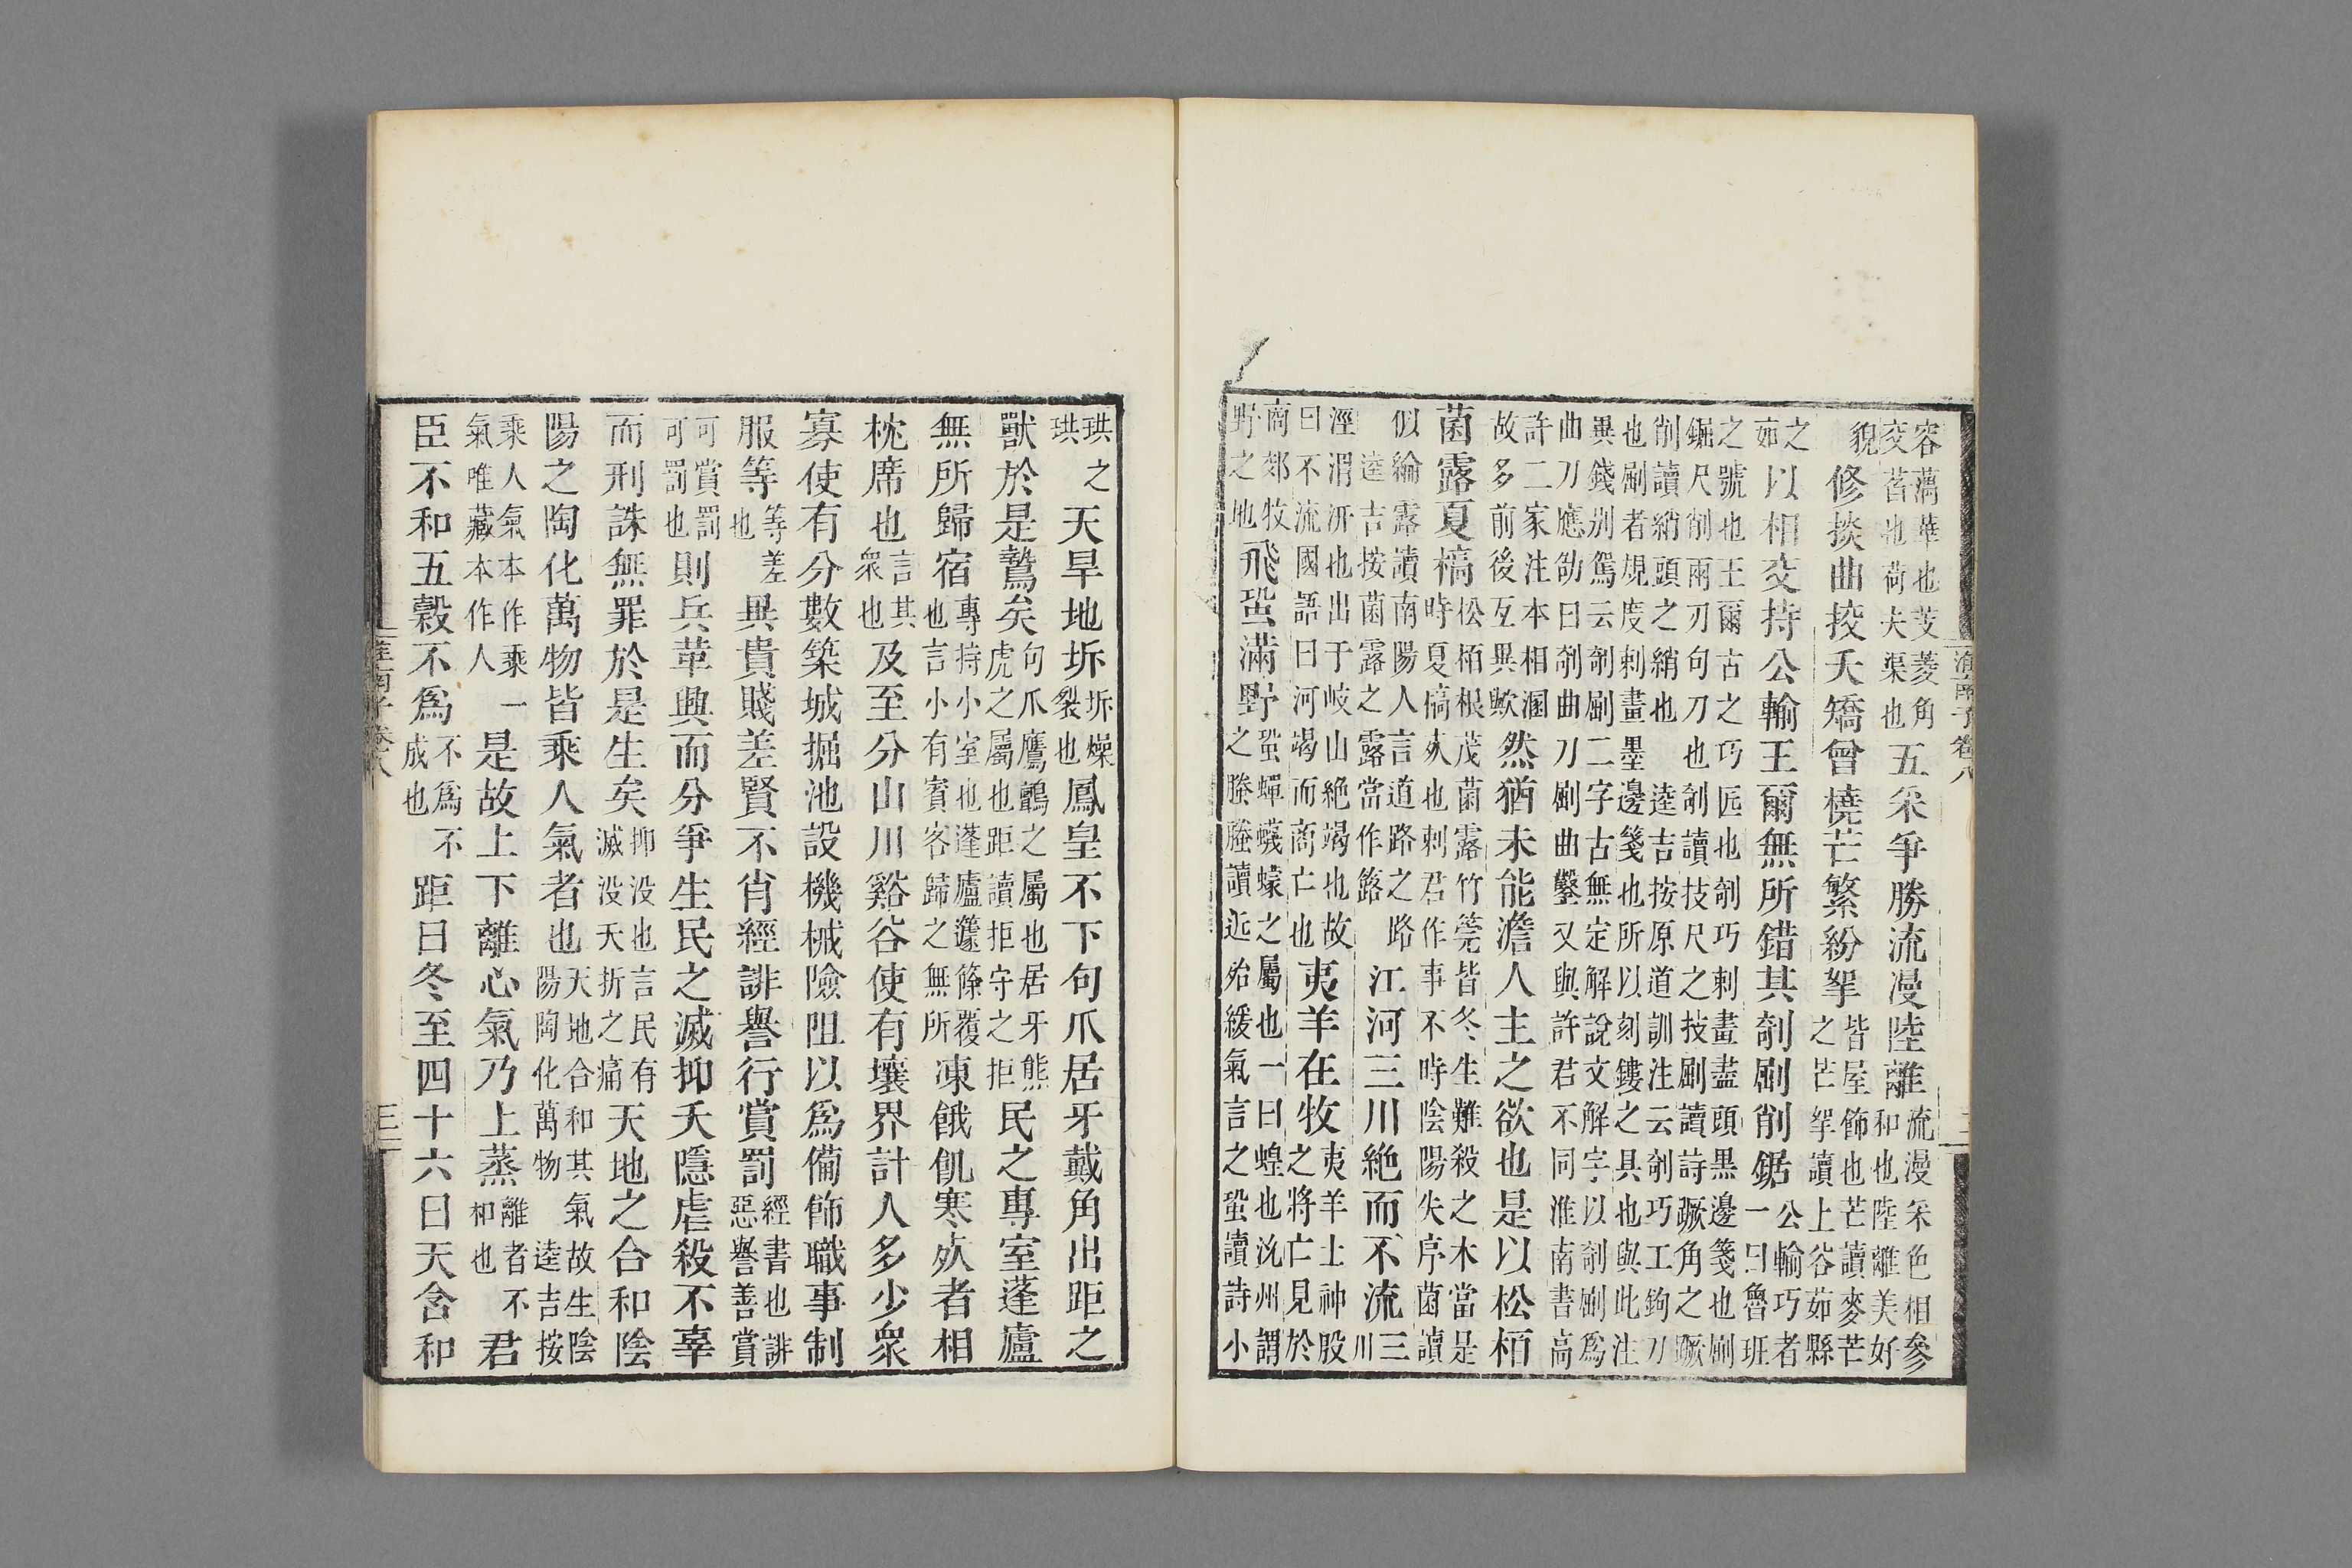 容蔐華也芰菱角交茗也荷夫渠也五采爭勝流漫陸離流漫采色相參和也陸離美好
貌修掞曲挍夭矯曾橈芒繁紛挐皆屋飾也芒讀麥芒之芒挐讀上谷茹縣
之茹以相交持公輸王爾無所錯其剞劂削鋸公輸巧者一曰魯班
之號也王爾古之巧匠也剞巧刺畫盡頭黑邊箋也劂
鋸尺削兩刃句刀也剞讀技尺之技劂讀詩蹶角之蹶
削讀綃頭之綃也 逵吉按原道訓注云剞巧工鉤刀
也劂者規度刺畫墨邊箋也所以刻鏤之具也與此注
異錢別駕云剞劂二字古無定解說文解字以剞劂爲
曲刀應劭曰剞曲刀劂曲鑿又與許君不同淮南書高
許二家注本相溷故多前後互異歟然猶未能澹人主之欲也是以松栢
菌露夏槁松栢根茂菌露竹筦皆冬生難殺之木當是時夏槁𣦸也刺君作事不時陰陽失序菌讀
似綸露讀南陽人言道路之路 逵吉按菌露之露當作簬江河三川絕而不流三川
涇渭汧也出于岐山絕竭也故曰不流國語曰河竭而商亡也夷羊在牧夷羊土神殷之將亡見於
商郊牧野之地飛蛩滿野蛩蟬蠛蠓之屬也一曰蝗也沇州謂之螣螣讀近殆緩氣言之蛩讀詩小
淮南子卷八
珙之珙天旱地坼坼燥裂也鳳皇不下句爪居牙戴角出距之
獸於是鷙矣句爪鷹鸇之屬也居牙熊虎之屬也距讀拒守之拒民之專室蓬廬
無所歸宿專特小室也蓬廬籧篨覆也言小有賓客歸之無所凍餓飢寒𣦸者相
枕席也言其衆也及至分山川谿谷使有壤界計人多少衆
寡使有分數築城掘池設機械險阻以爲備飾職事制
服等等差也異貴賤差賢不肖經誹譽行賞罰經書也誹惡譽善賞
可賞罰可罰也則兵革興而分爭生民之滅抑夭隱虐殺不辜
而刑誅無罪於是生矣抑没也言民有滅没夭折之痛天地之合和陰
陽之陶化萬物皆乘人氣者也天地合和其氣故生陰陽陶化萬物 逵吉按
乘人氣本作乘一氣唯藏本作人是故上下離心氣乃上蒸離者不和也君
臣不和五穀不爲不爲不成也距日冬至四十六日天含和
淮南子卷八 三